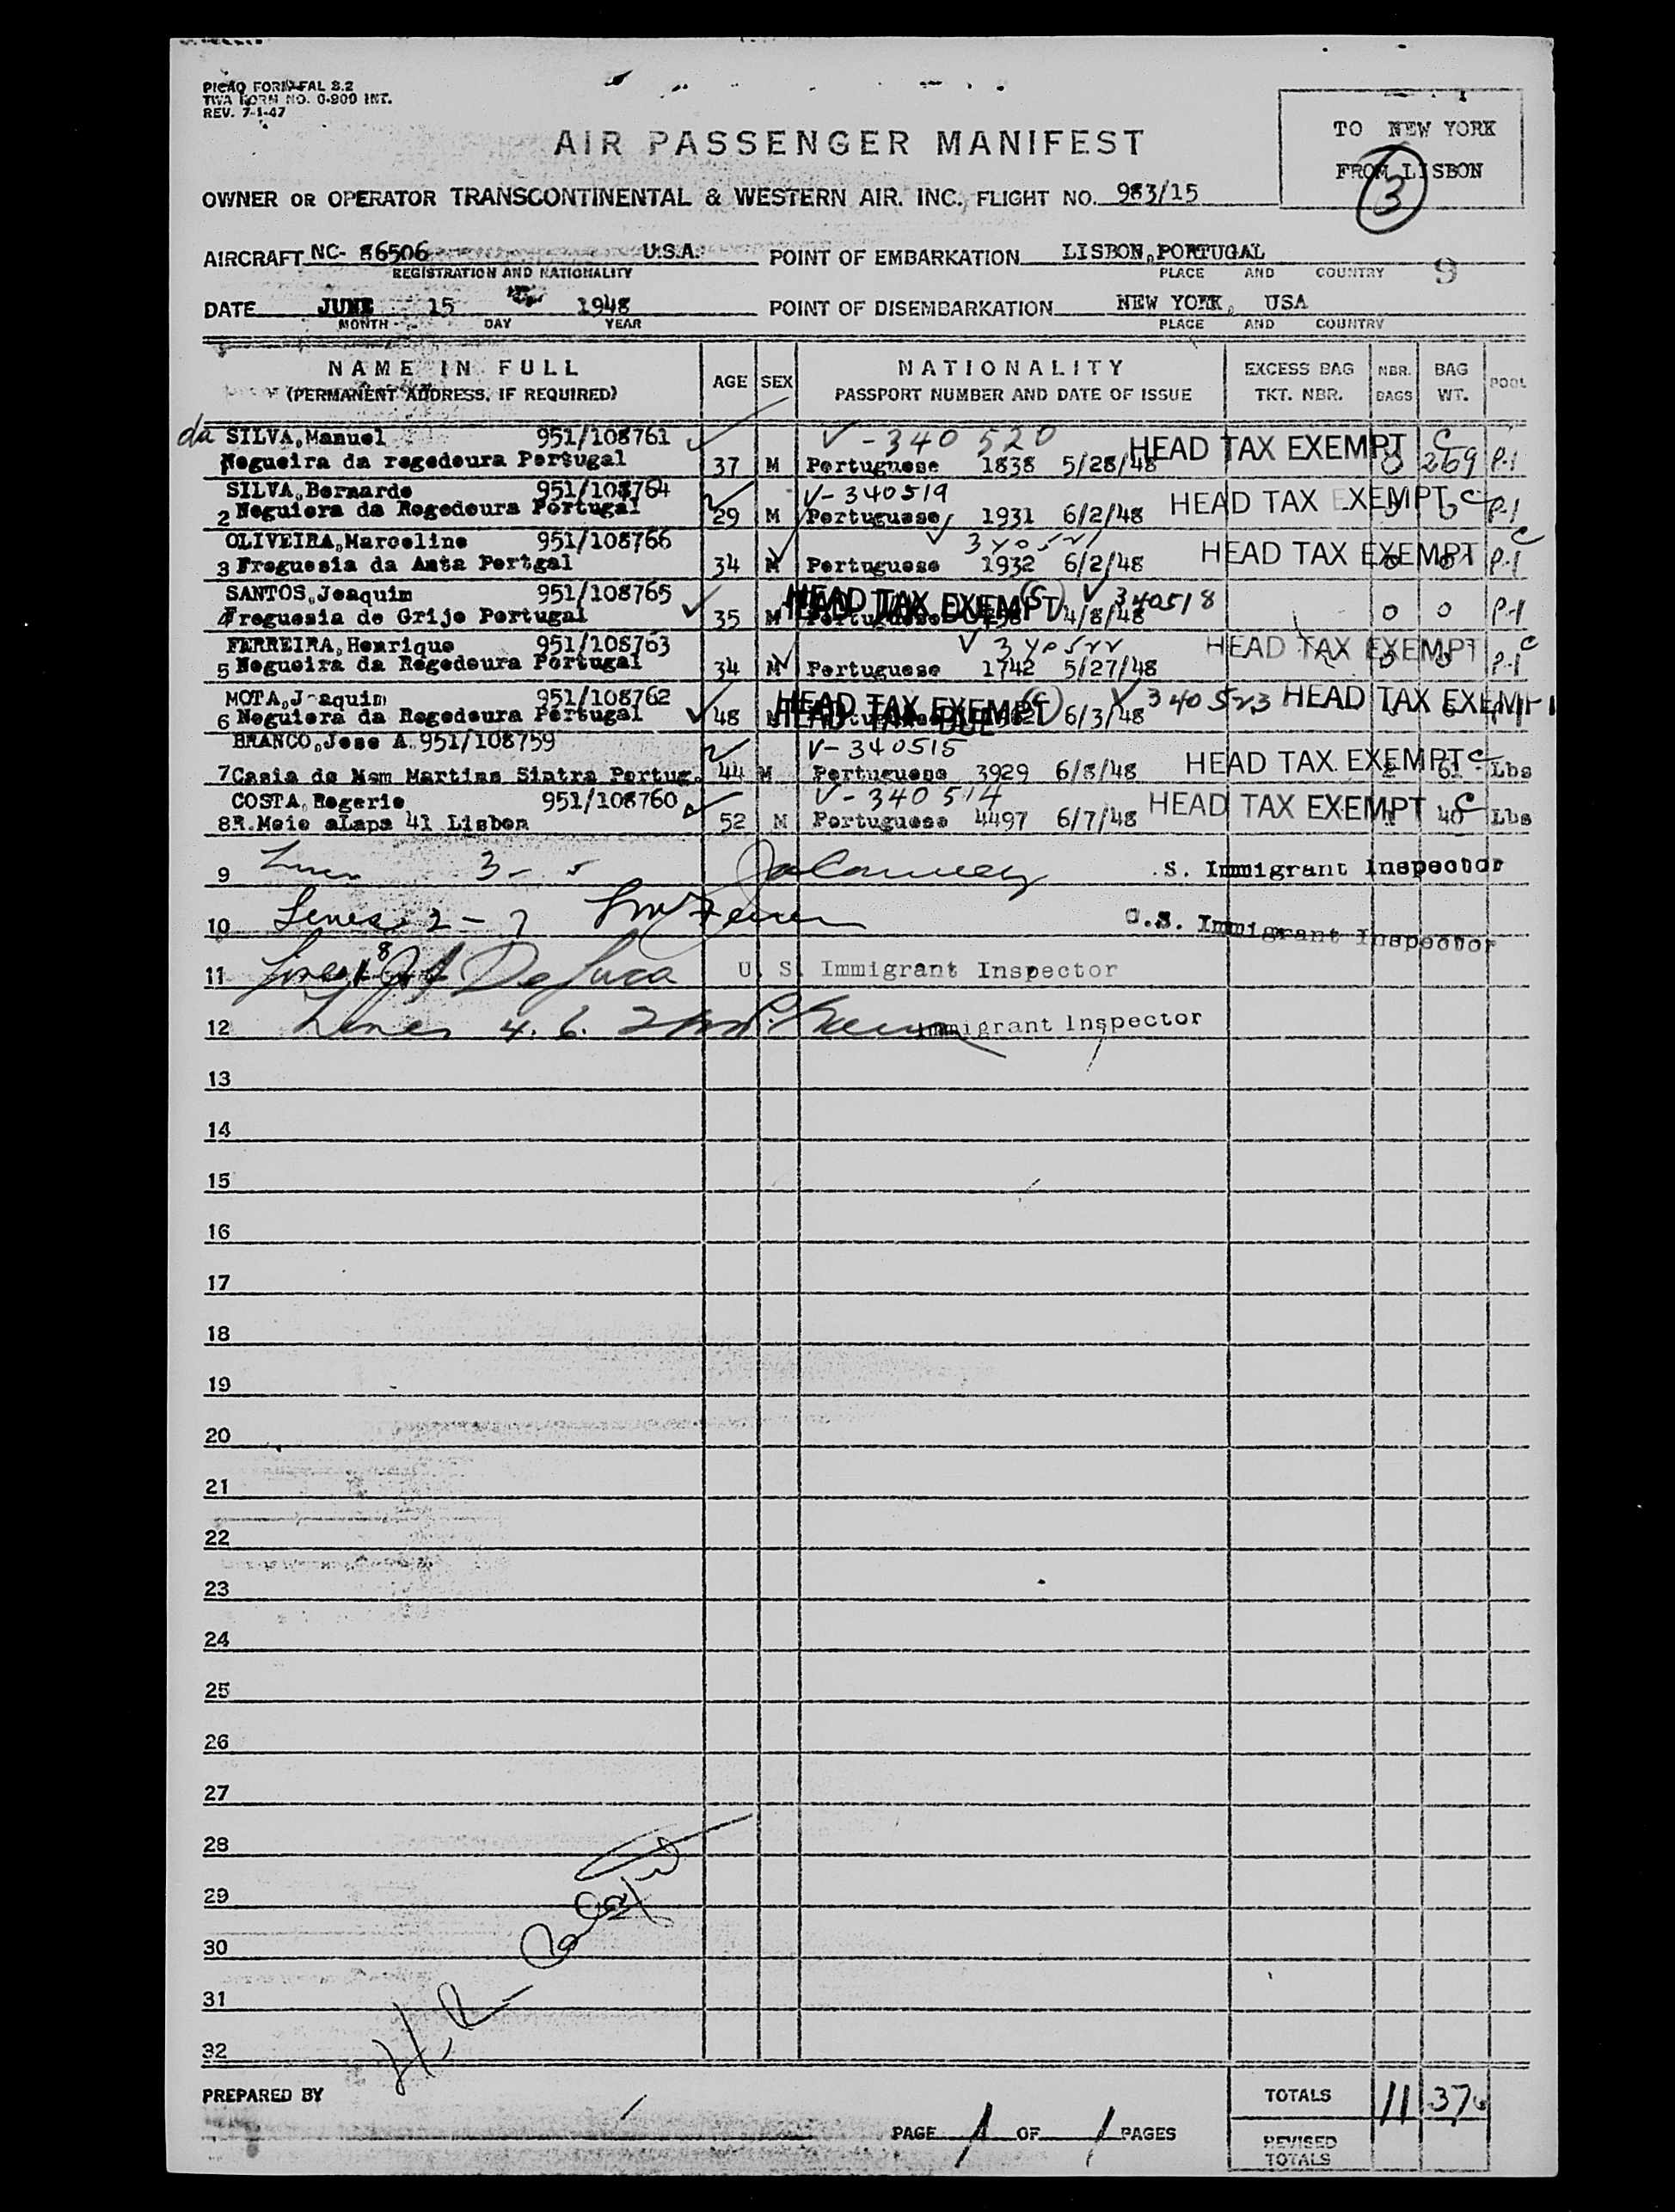 PICAO FORM-FAL 2.2
TWA FORM NO. O-900 INT.
REV. 7-1-47
TO NEW YORK
FROM LISBON
3
AIR PASSENGER MANIFEST
OWNER OR OPERATOR TRANSCONTINENTAL & WESTERN AIR. INC., FLIGHT NO. 983/15
AIRCRAFT NC- 86506 U.S.A. POINT OF EMBARKATION LISBON, PORTUGAL
REGISTRATION AND NATIONALITY PLACE AND COUNTRY 9
DATE JUNE 15 1948 POINT OF DISEMBARKATION NEW YORK, USA
MONTH DAY YEAR PLACE AND COUNTRY
NAME IN FULL AGE SEX NATIONALITY EXCESS BAG NBR. BAG POOL
(PERMANENT ADDRESS, IF REQUIRED) PASSPORT NUMBER AND DATE OF ISSUE TKT. NBR. BAGS WT.
da SILVA, Manuel 951/108761 V-340520 HEAD TAX EXEMPT C
Nogueira da regedoura Portugal 37 M Portuguese 1838 5/28/48 269 P-1
SILVA, Bernardo 951/108764 V-340519 HEAD TAX EXEMPT C
2 Neguiera da Regedoura Portugal 29 M Portuguese 1931 6/2/48 P-1
OLIVEIRA, Marcelino 951/108766 340521 HEAD TAX EXEMPT C
3 Freguesia da Anta Pertgal 34 M Portuguese 1932 6/2/48 P-1
SANTOS, Joaquim 951/108765 HEAD TAX EXEMPT (C) V 340518
4 Freguesia de Grijo Portugal 35 M Portuguese 4/8/48 0 0 P-1
FERREIRA, Henrique 951/108763 V 340522 HEAD TAX EXEMPT C
5 Nogueira da Regedoura Portugal 34 M Portuguese 1742 5/27/48 P-1
MOTA, Joaquim 951/108762 HEAD TAX EXEMPT (C) V 340523 HEAD TAX EXEMPT
6 Neguiera da Regedoura Portugal 48 M Portuguese 6/3/48
BRANCO, Jose A. 951/108759 V-340515 HEAD TAX EXEMPT C
7 Casia de Mem Martins Sintra Portug. 44 M Portuguese 3929 6/8/48 Lbs
COSTA, Rogerio 951/108760 V-340514 HEAD TAX EXEMPT C
8 R. Meio aLapa 41 Lisbon 52 M Portuguese 4497 6/7/48 40 Lbs
9 3 - 5 S. Immigrant Inspector
10 Lines 2 - 7 U.S. Immigrant Inspector
11 Lines 1 8 DeLuca U. S. Immigrant Inspector
12 Lines 4. 6. Immigrant Inspector
13
14
15
16
17
18
19
20
21
22
23
24
25
26
27
28
29
30
31
32
PREPARED BY TOTALS 11 370
PAGE 1 OF 1 PAGES REVISED
TOTALS